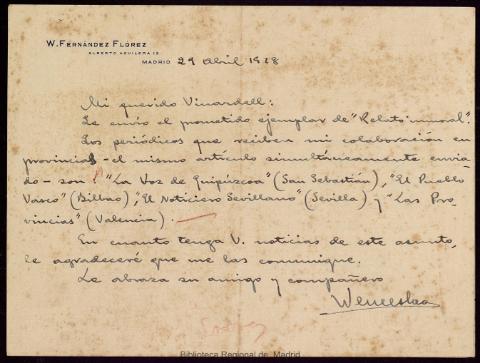 W. Fernández Flórez
Alberto Aguilera 12
Madrid 29 Abril 1928
Mi querido Vinardell:
Le envío el prometido ejemplar de "Relato inmoral".
Los periódicos que reciben mi colaboración en
provincias - el mismo artículo simultáneamente envia-
do - son: "La Voz de Guipúzcoa" (San Sebastián), "El Pueblo
Vasco" (Bilbao), "El Noticiero Sevillano" (Sevilla) y "Las Pro-
vincias" (Valencia).
En cuanto tenga V. noticias de este asunto,
le agradeceré que me las comunique.
Le abraza su amigo y compañero
Wenceslao
Biblioteca Regional de Madrid